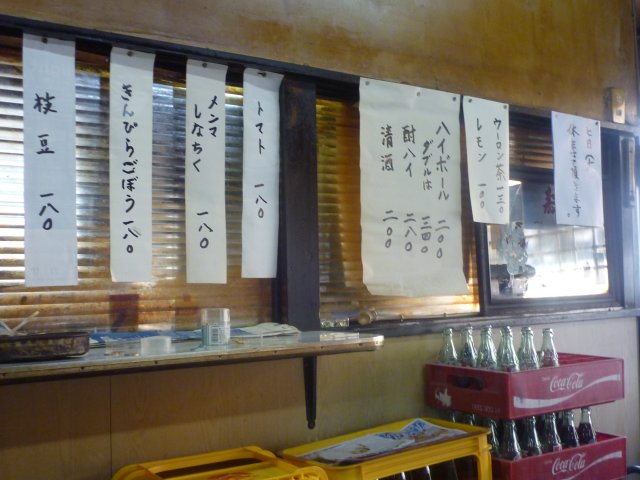 枝豆 一八〇
きんぴらごぼう 一八〇
メンマ
しなちく 一八〇
トマト 一八〇
ハイボール 二〇〇
ダブルは 三四〇
酎ハイ 二八〇
清酒 二〇〇
ウーロン茶 一三〇
レモン 一〇〇
Coca-Cola
Coca-Cola